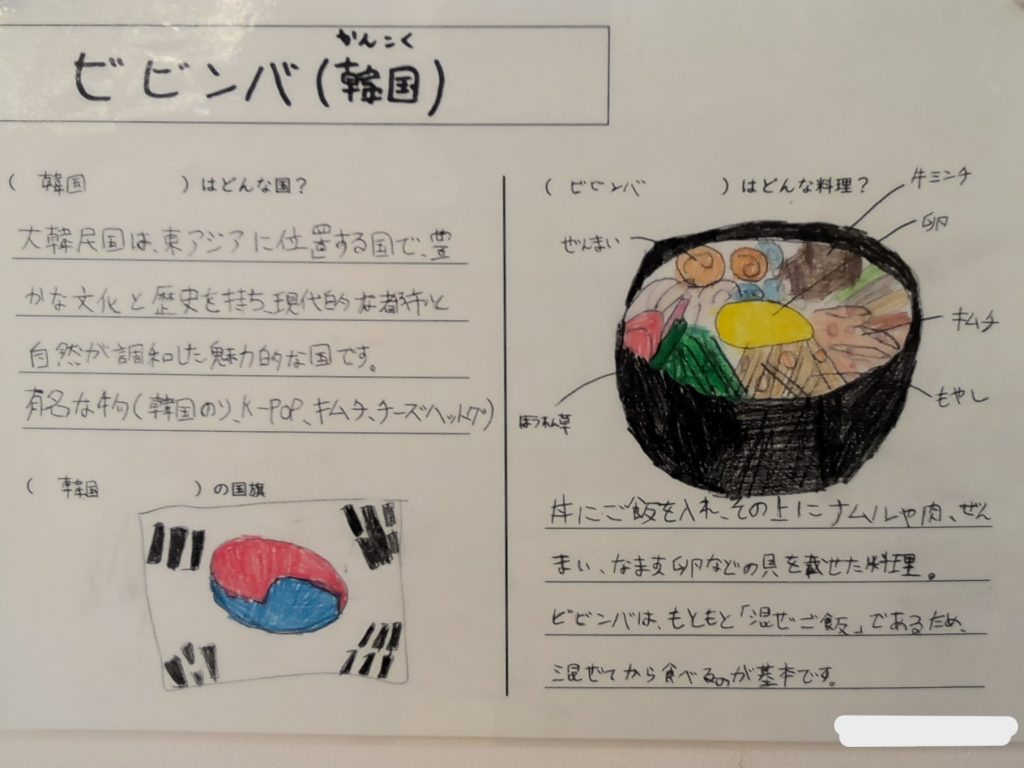 かんこく
ビビンバ(韓国)
( 韓国 )はどんな国?
大韓民国は、東アジアに位置する国で、豊
かな文化と歴史を持ち、現代的な都市と
自然が調和した魅力的な国です。
有名な物(韓国のり、K-POP、キムチ、チーズハットグ)
( 韓国 )の国旗
( ビビンバ )はどんな料理?
牛ミンチ
卵
ぜんまい
キムチ
もやし
ほうれん草
丼にご飯を入れ、その上にナムルや肉、ぜん
まい、なます卵などの具を載せた料理。
ビビンバは、もともと「混ぜご飯」であるため、
混ぜてから食べるのが基本です。